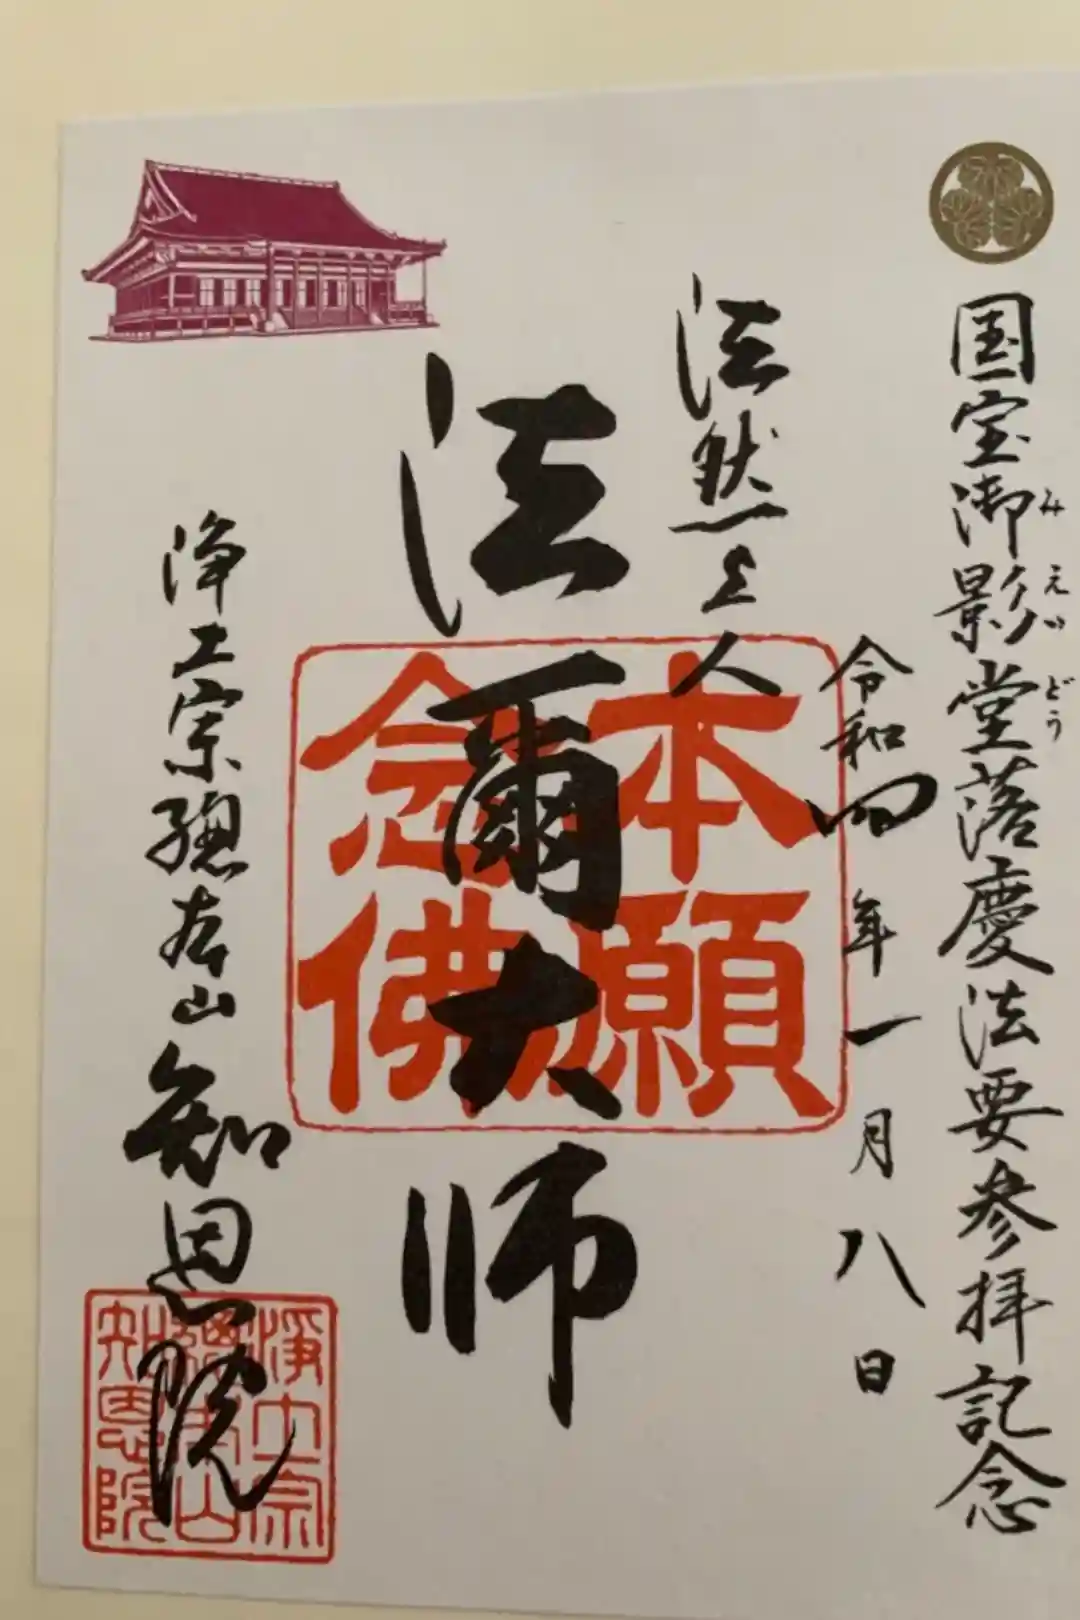 国宝御影堂落慶法要参拝記念
みえいどう
令和四年一月八日
法然上人
法爾大師
本願
念佛
浄土宗總本山知恩院
淨土宗
總本山
知恩院